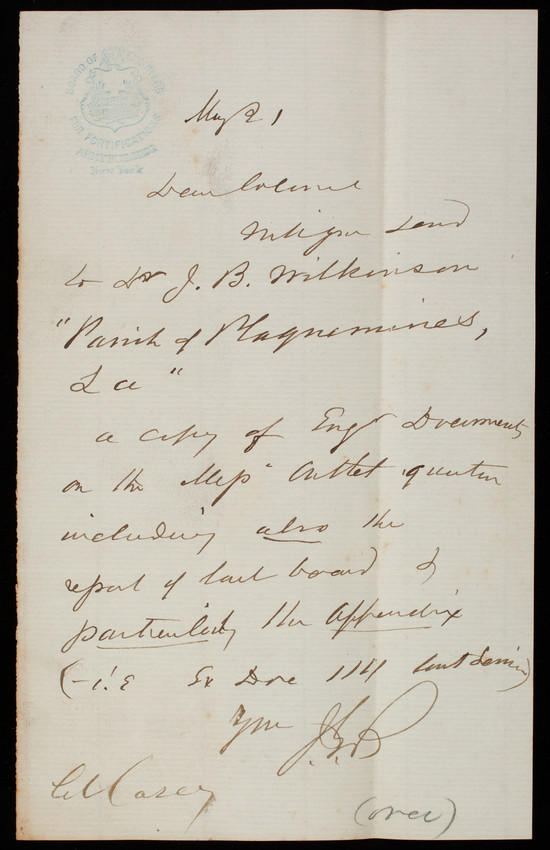 BOARD OF ENGINEERS
FOR FORTIFICATIONS
New York
May 21
Dear Colonel
Will you send
to Dr J. B. Wilkinson
"Parish of Plaquemines,
La"
a copy of Engr Documents
on the Misp Outlet question
including also the
report of last board &
particularly the appendix
(- i.e Ex Doc 114 last Session)
Yrs JGB
Col Casey
(over)